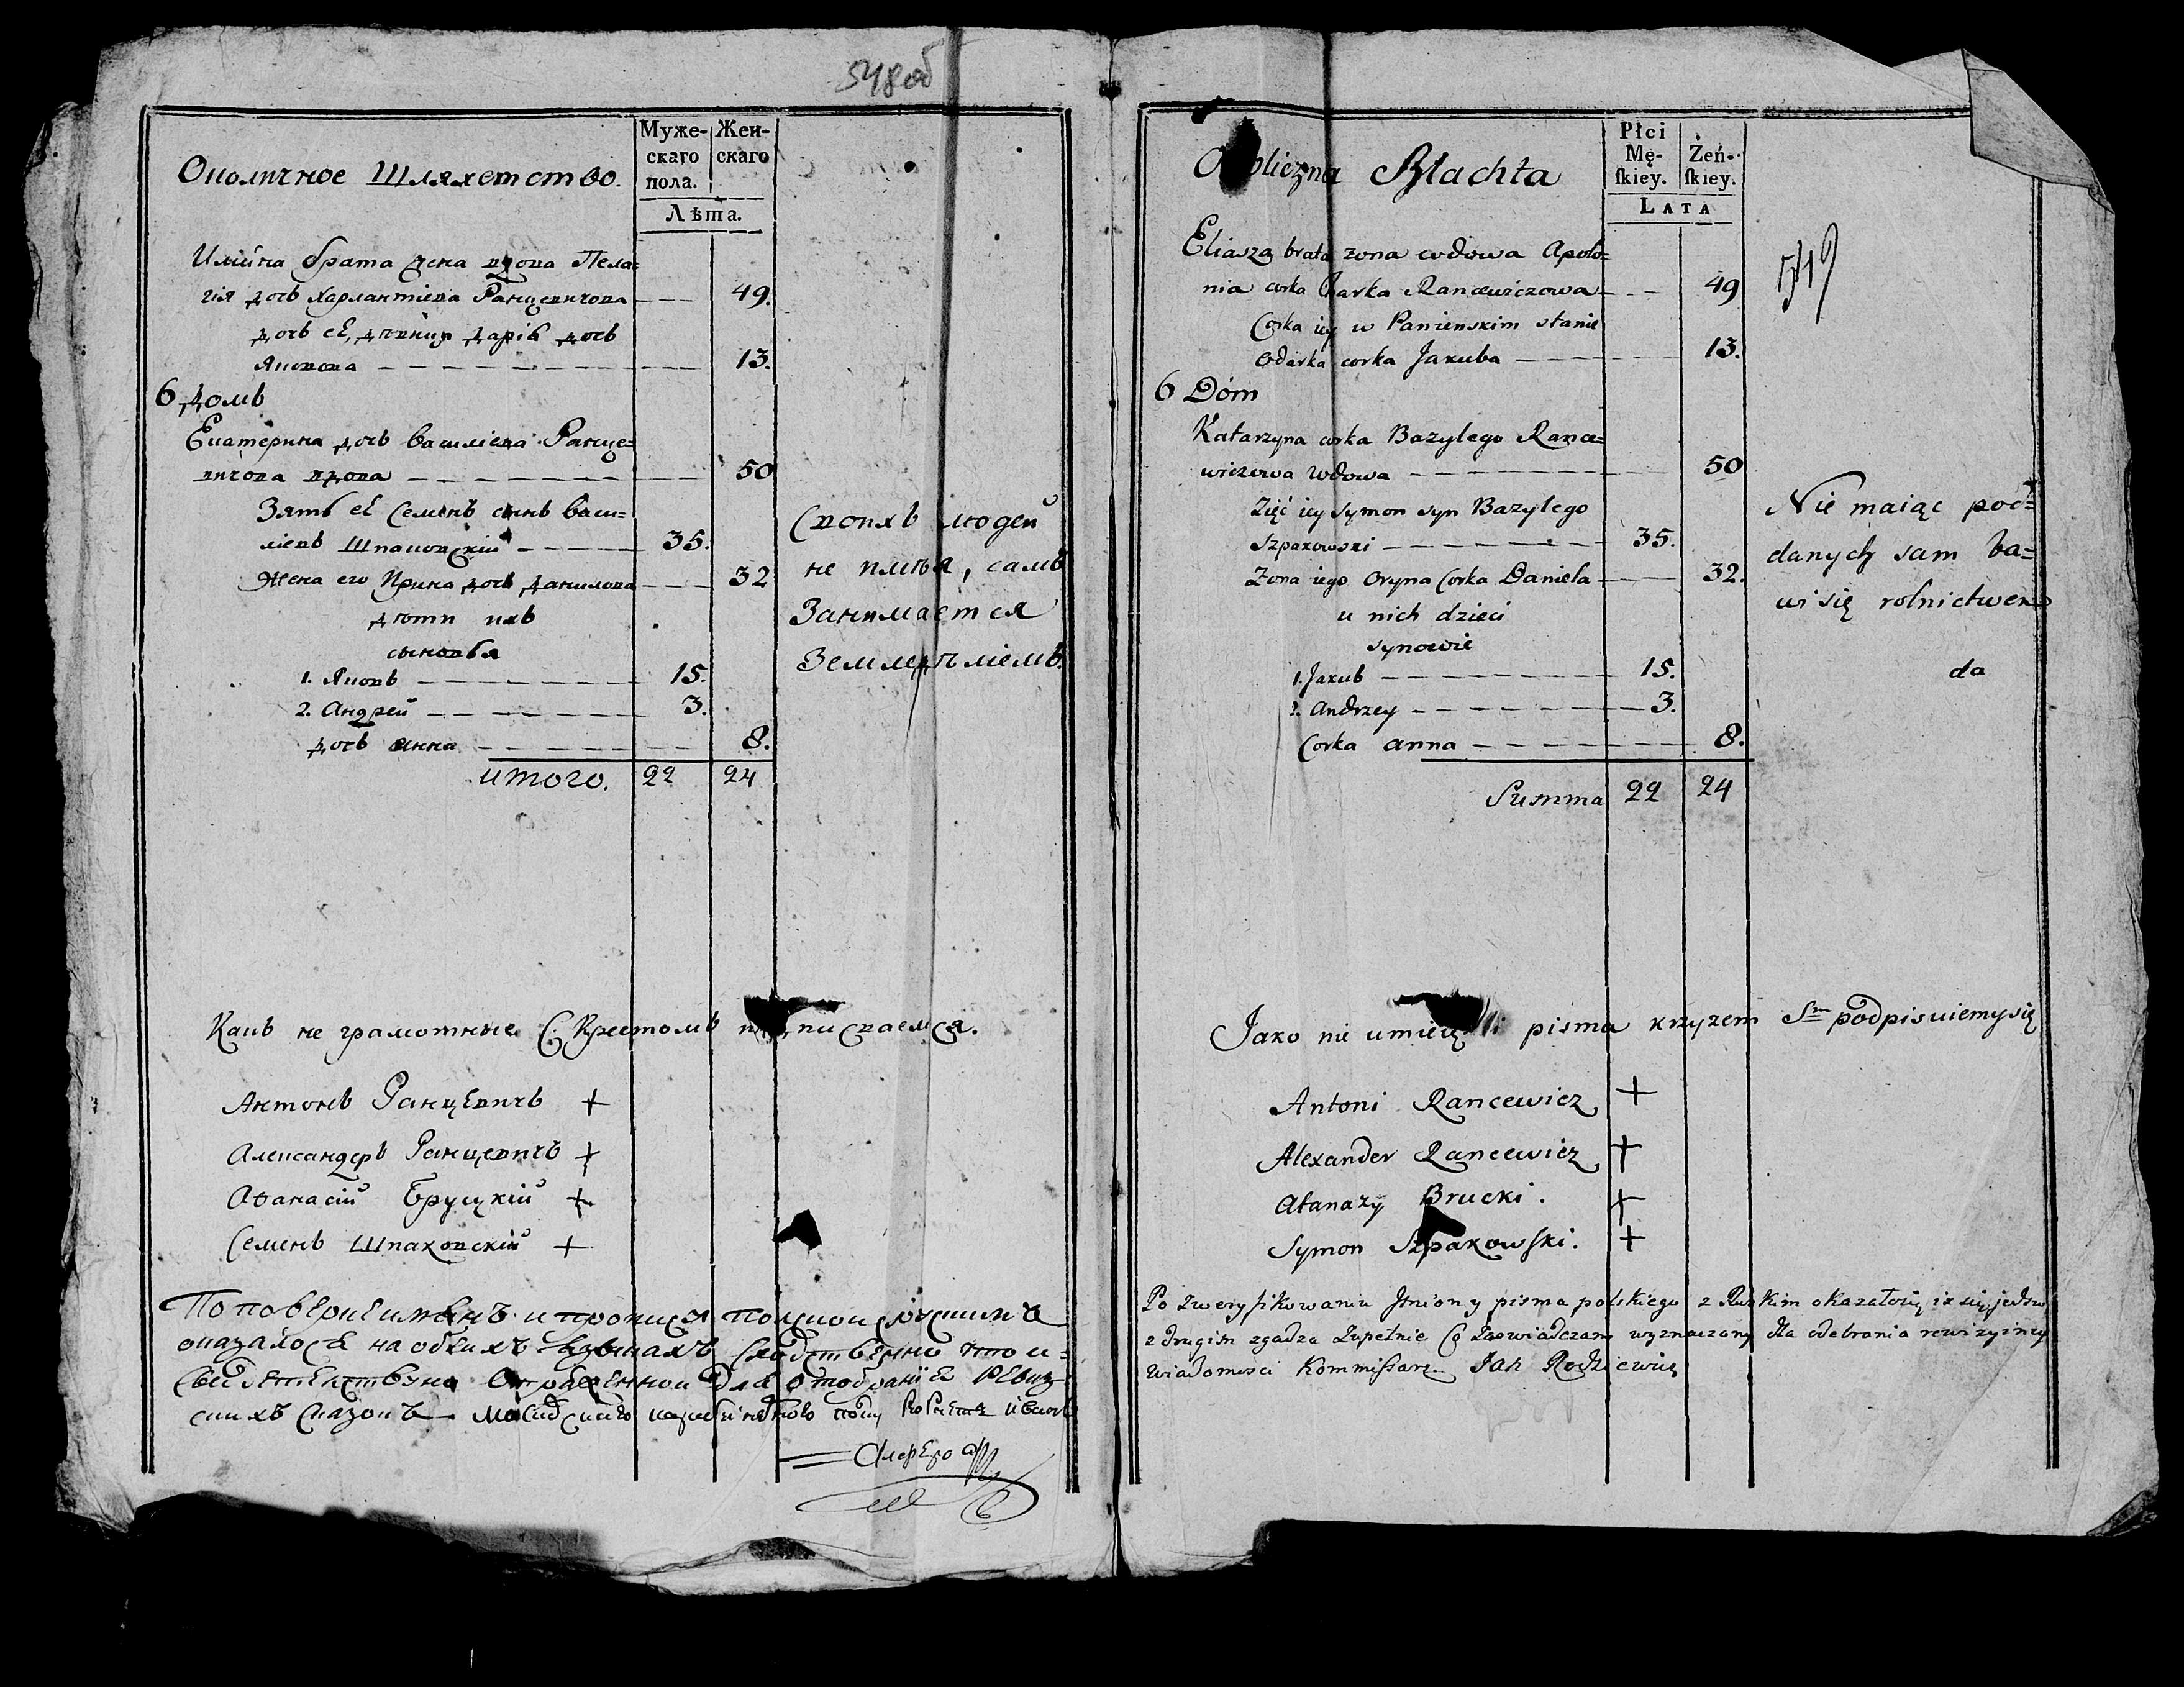 548об
Околичное Шляхетство.
Муже-
скаго
пола.
Жен-
скаго
Лѣта.
Илiйна брата жена вдова Пела=
гiя дочь Харлантiева Ранцевичова — — 49.
дочь еѣ, дѣвица Дарiя дочь
Якова — — — 13.
6 домъ
Екатерина дочь Василiева Ранце=
вичова вдова — — — 50
Зять еѣ Семенъ сынъ васи=
лiевъ Шпаковскiй — — — 35.
Жена его Ирина дочь Данилова — — 32
дѣти ихъ
сыновья
1. Яковъ — — — 15.
2. Андрей — — — 3.
дочь анна — — — 8.
итого. 22 24
Своихъ людей
не имѣя, самъ
Занимается
Земледѣлiемъ.
Какъ не грамотные С: Крестомъ подписваемся.
Антонъ Ранцевичъ +
Александеръ Ранцевичъ +
Афанасiй Бруцкiй +
Семенъ Шпаковскiй +
оказалося на обеихъ
Алферо
Okoliczna Szlachta
Płci
Mę-
ſkiey.
Żeń-
ſkiey.
LATA
549
Eliasza brata zona wdowa Apolo=
nia corka Rancewiczowa — — 49
Corka iey w Panienskim stanie
Odarka corka Jakuba — — — 13.
6 Dóm
Katarzyna corka Bazylego Rance=
wiczowa wdowa — — — 50
Zięć iey Symon syn Bazylego
Szpakowski — — — 35.
Zona iego Oryna Corka Daniela — — 32.
u nich dzieci
synowie
1. Jakub — — — 15.
2. Andrzey — — — 3.
Corka anna — — — 8.
Summa 22 24
Nie maiąc pod=
danych sam ba=
wi się rolnictwem
da
Jako nie umieią pisma krzyzem Sm podpisuiemy się
Antoni Rancewicz +
Alexander Rancewicz +
Atanazy Brucki. +
Symon Szpakowſki. +
Po zweryfikowaniu pisma polskiego z Ruskim okazało się iz się jedno
z drugim zgadza zupełnie Co Zaswiadczam wyznaczony dla odebrania rewizyiney
wiadomosci Kommiſsarz Jan